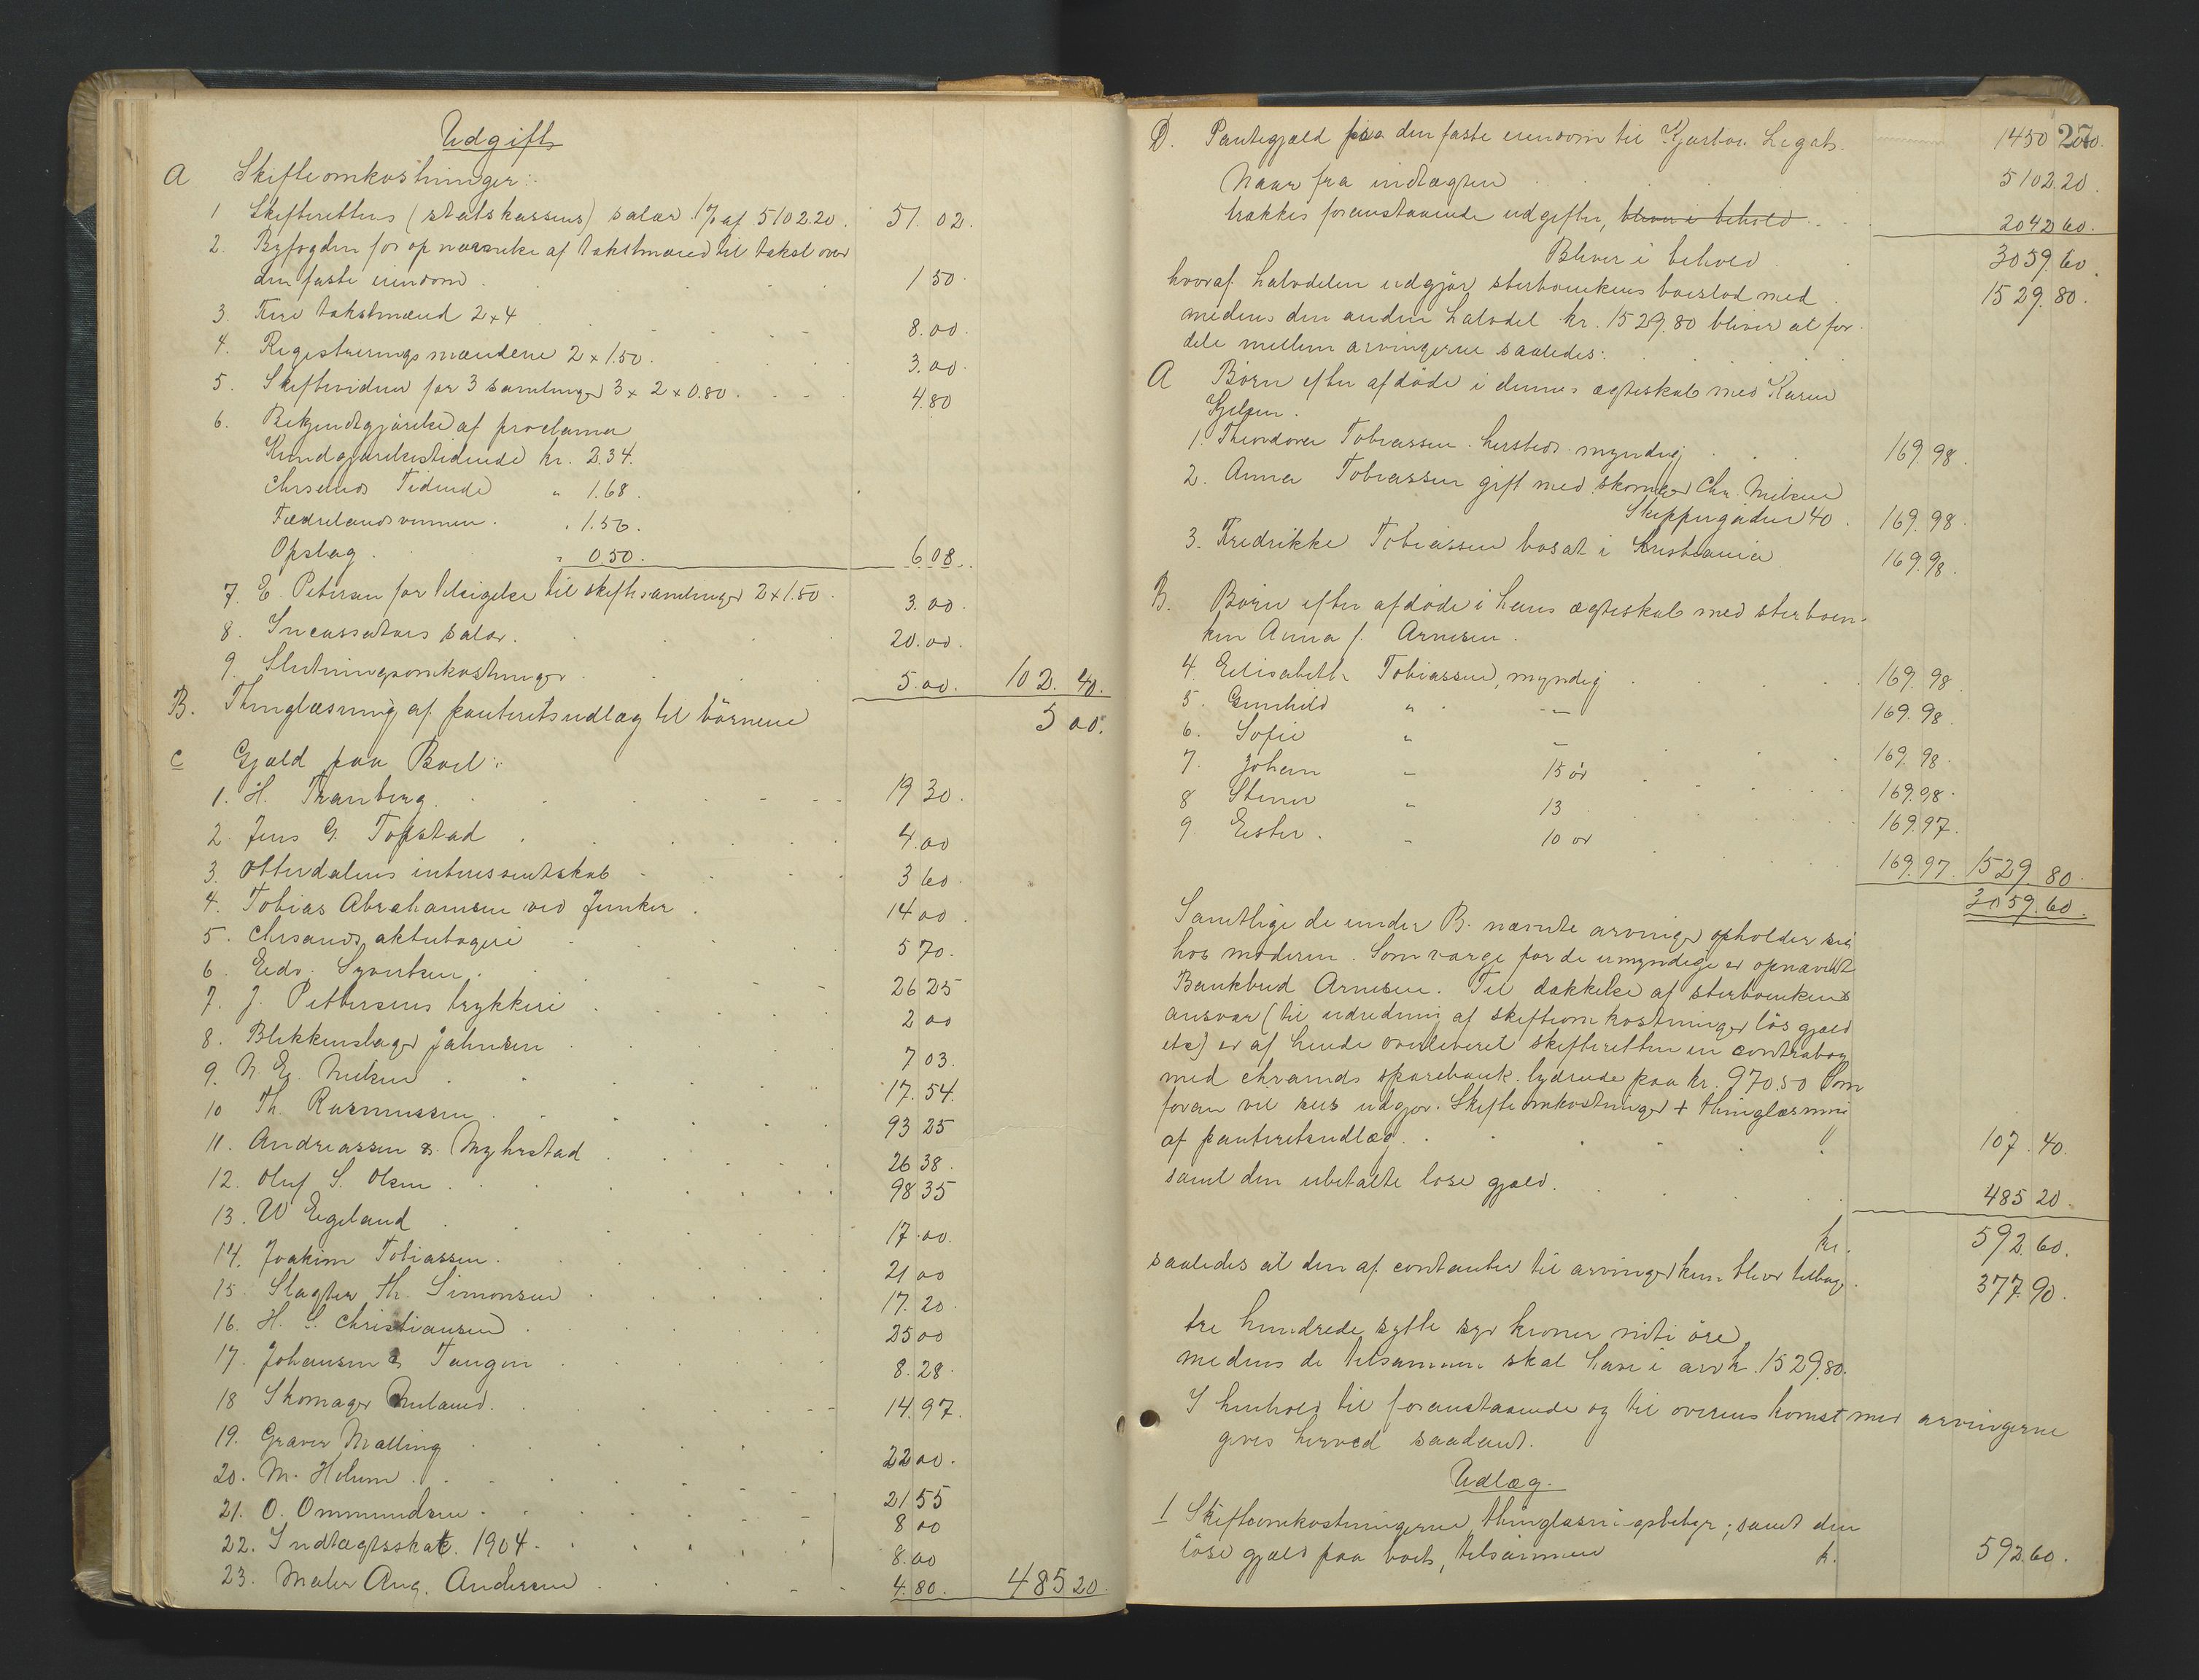 Udgift
A Skifteomkostninger:
1 Skifterettens (statskassens) salær 1% af 5102.20. 51.02.
2. Byfogden for opnævnelse af takstmænd til takst over
den faste eiendom 1 50.
3. Fire takstmænd 2x4 8.00.
4. Registreringsmændene 2 x 1.50. 3.00.
5. Skiftevidner for 3 samlinger 3 x 2 x 0.80. 4.80
6. Bekjendtgjørelse af proclama
Kundgjørelsestidende kr. 2.34.
Chrsands Tidende " 1.68.
Fædrelandsvennen. " 1.56.
Opslag. " 0.50. 6.08.
7. E. Petersen for tilsigelse til skiftesamlinger 2x1.50. 3.00.
8. Incassators salær. 20.00.
9. Slutningsomkostninger 5.00. 102.40.
B. Thinglæsning af panteretsudlæg til børnene 5 00.
C Gjæld paa Boet:
1. H. Tranberg. 19 30.
2. Jens G. Topstad 4.00
3. Otterdalens interessentskab 3 60.
4. Tobias Abrahamsen ved Junker. 14 00.
5. Chrsands aktiebageri 5 70.
6. Edv. Syvertsen. 26 25
7. J. Pettersens trykkeri 2 00
8. Blikkenslager Jahnsen 7 03.
9. N. E. Nielsen 17.54.
10 Th. Rasmussen 93 25
11. Andreassen & Myhrstad 26 38.
12. Oluf S. Olsen 98 35
13. W Egeland 17.00.
14. Joakim Tobiassen. 21 00
15. Slagter Th. Simonsen 17.20.
16. H. S. Christiansen 25 00
17. Johansen & Tangen 8.28.
18 Skomager 14.97.
19. Graver Malling 22 00.
20. M. Holum. 21 55
21. O. Ommundsen. 8 00
22. Indtægtsskat. 1904. 8.00
23. Maler Aug. Andersen 4.80. 485 20.
D. Pantegjæld paa den faste eiendom til Legat. 1450 00. 257
Naar fra indtægten 5102.20.
trækkes foranstaaende udgifter, bliver i behold 2042 60.
Bliver i behold 3059.60.
hvoraf halvdelen udgjør sterboenkens boeslod med 1529.80.
medens den anden halvdel kr. 1529.80 bliver at for-
dele mellem arvingerne saaledes:
A Børn efter afdøde i dennes ægteskab med Karen
1. Theodora Tobiassen hersteds myndig 169.98.
2. Anna Tobiassen gift med skomager Chr. Nielsen
Skippergaden 40. 169.98.
3. Fredrikke Tobiassen bosat i Kristiania 169.98.
B. Børn efter afdøde i hans ægteskab med sterboen-
ken Anna f. Arnesen.
4. Elisabeth Tobiassen, myndig 169.98.
5. Gunhild " - 169.98.
6. Sofie " - 169.98.
7. Johan " 15 år 169.98.
8 Stener " 13 169.97.
9 Ester. " 10 år 169.97. 1529.80.
3059.60.
Samtlige de under B. nævnte arvinger opholder sig
hos moderen. Som værge for de umyndige er opnævnt
Bankbud Arnesen. Til dækkelse af sterboenkens
ansvar (til udredning af skifteomkostninger løs gjæld
etc) er af hende overleveret skifteretten en contrabog
med Chrsands sparebank lydende paa kr. 970.50 Som
foran vil sees udgjør. Skifteomkostninger + thinglæsning
af panteretsudlæg. " 107.40.
samt den ubetalte løse gjæld. 485 20.
kr. 592.60.
saaledes at den af contanter til arvinger kun bliver tilbage. 377.90.
tre hundrede sytti syv kroner nitti øre,
medens de tilsammen skal have i arv kr. 1529.80.
I henhold til foranstaaende og til overenskomst med arvingerne
gives herved saadant.
Udlæg.
1 Skifteomkostningerne, thinglæsningsgebyr; samt den
løse gjæld paa boet, tilsammen k. 592.60.